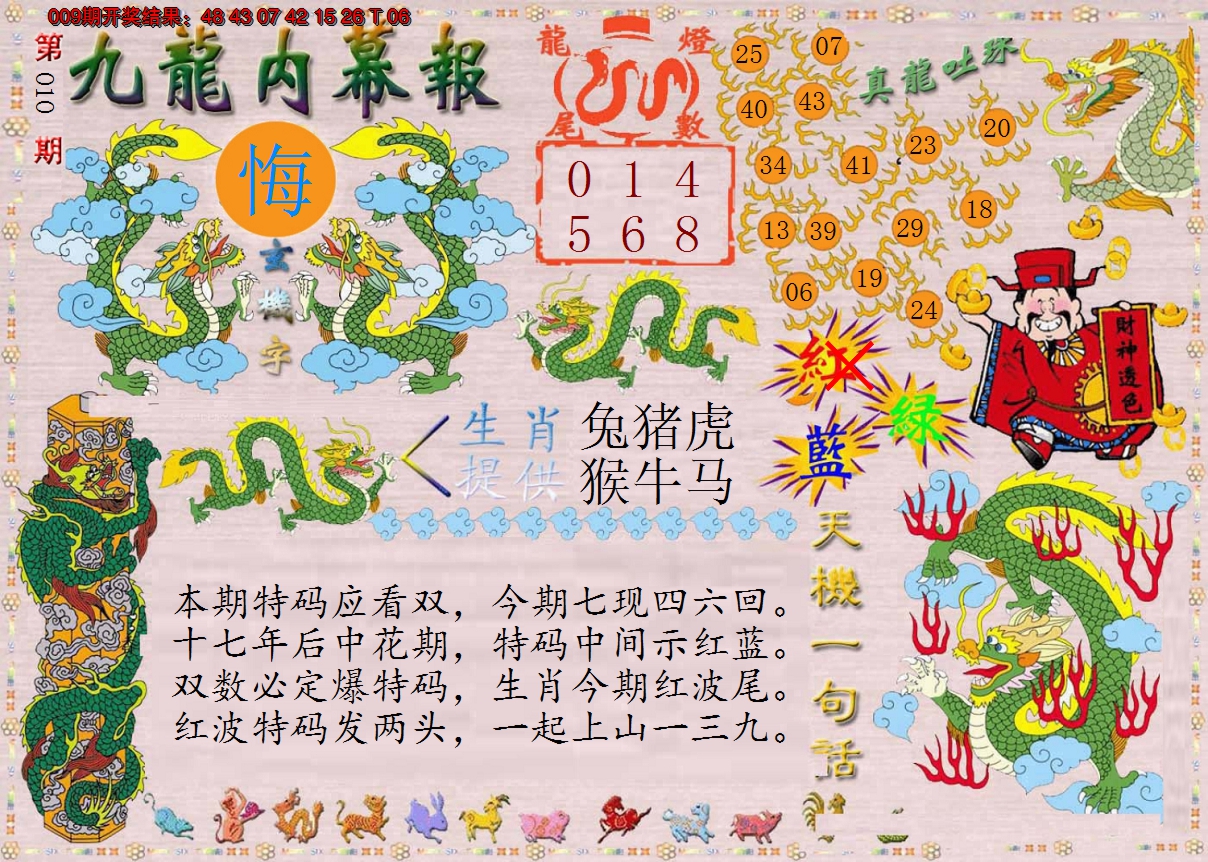 009期开奖结果：48 43 07 42 15 26 T 06
第010期
九龍内幕報
悔
玄機字
龍燈尾數
0 1 4
5 6 8
真龍吐珠
25
07
40
43
34
41
23
20
13
39
29
18
06
19
24
財神透色
紅
綠
藍
生肖 兔猪虎
提供 猴牛马
天機一句話
本期特码应看双，今期七现四六回。
十七年后中花期，特码中间示红蓝。
双数必定爆特码，生肖今期红波尾。
红波特码发两头，一起上山一三九。